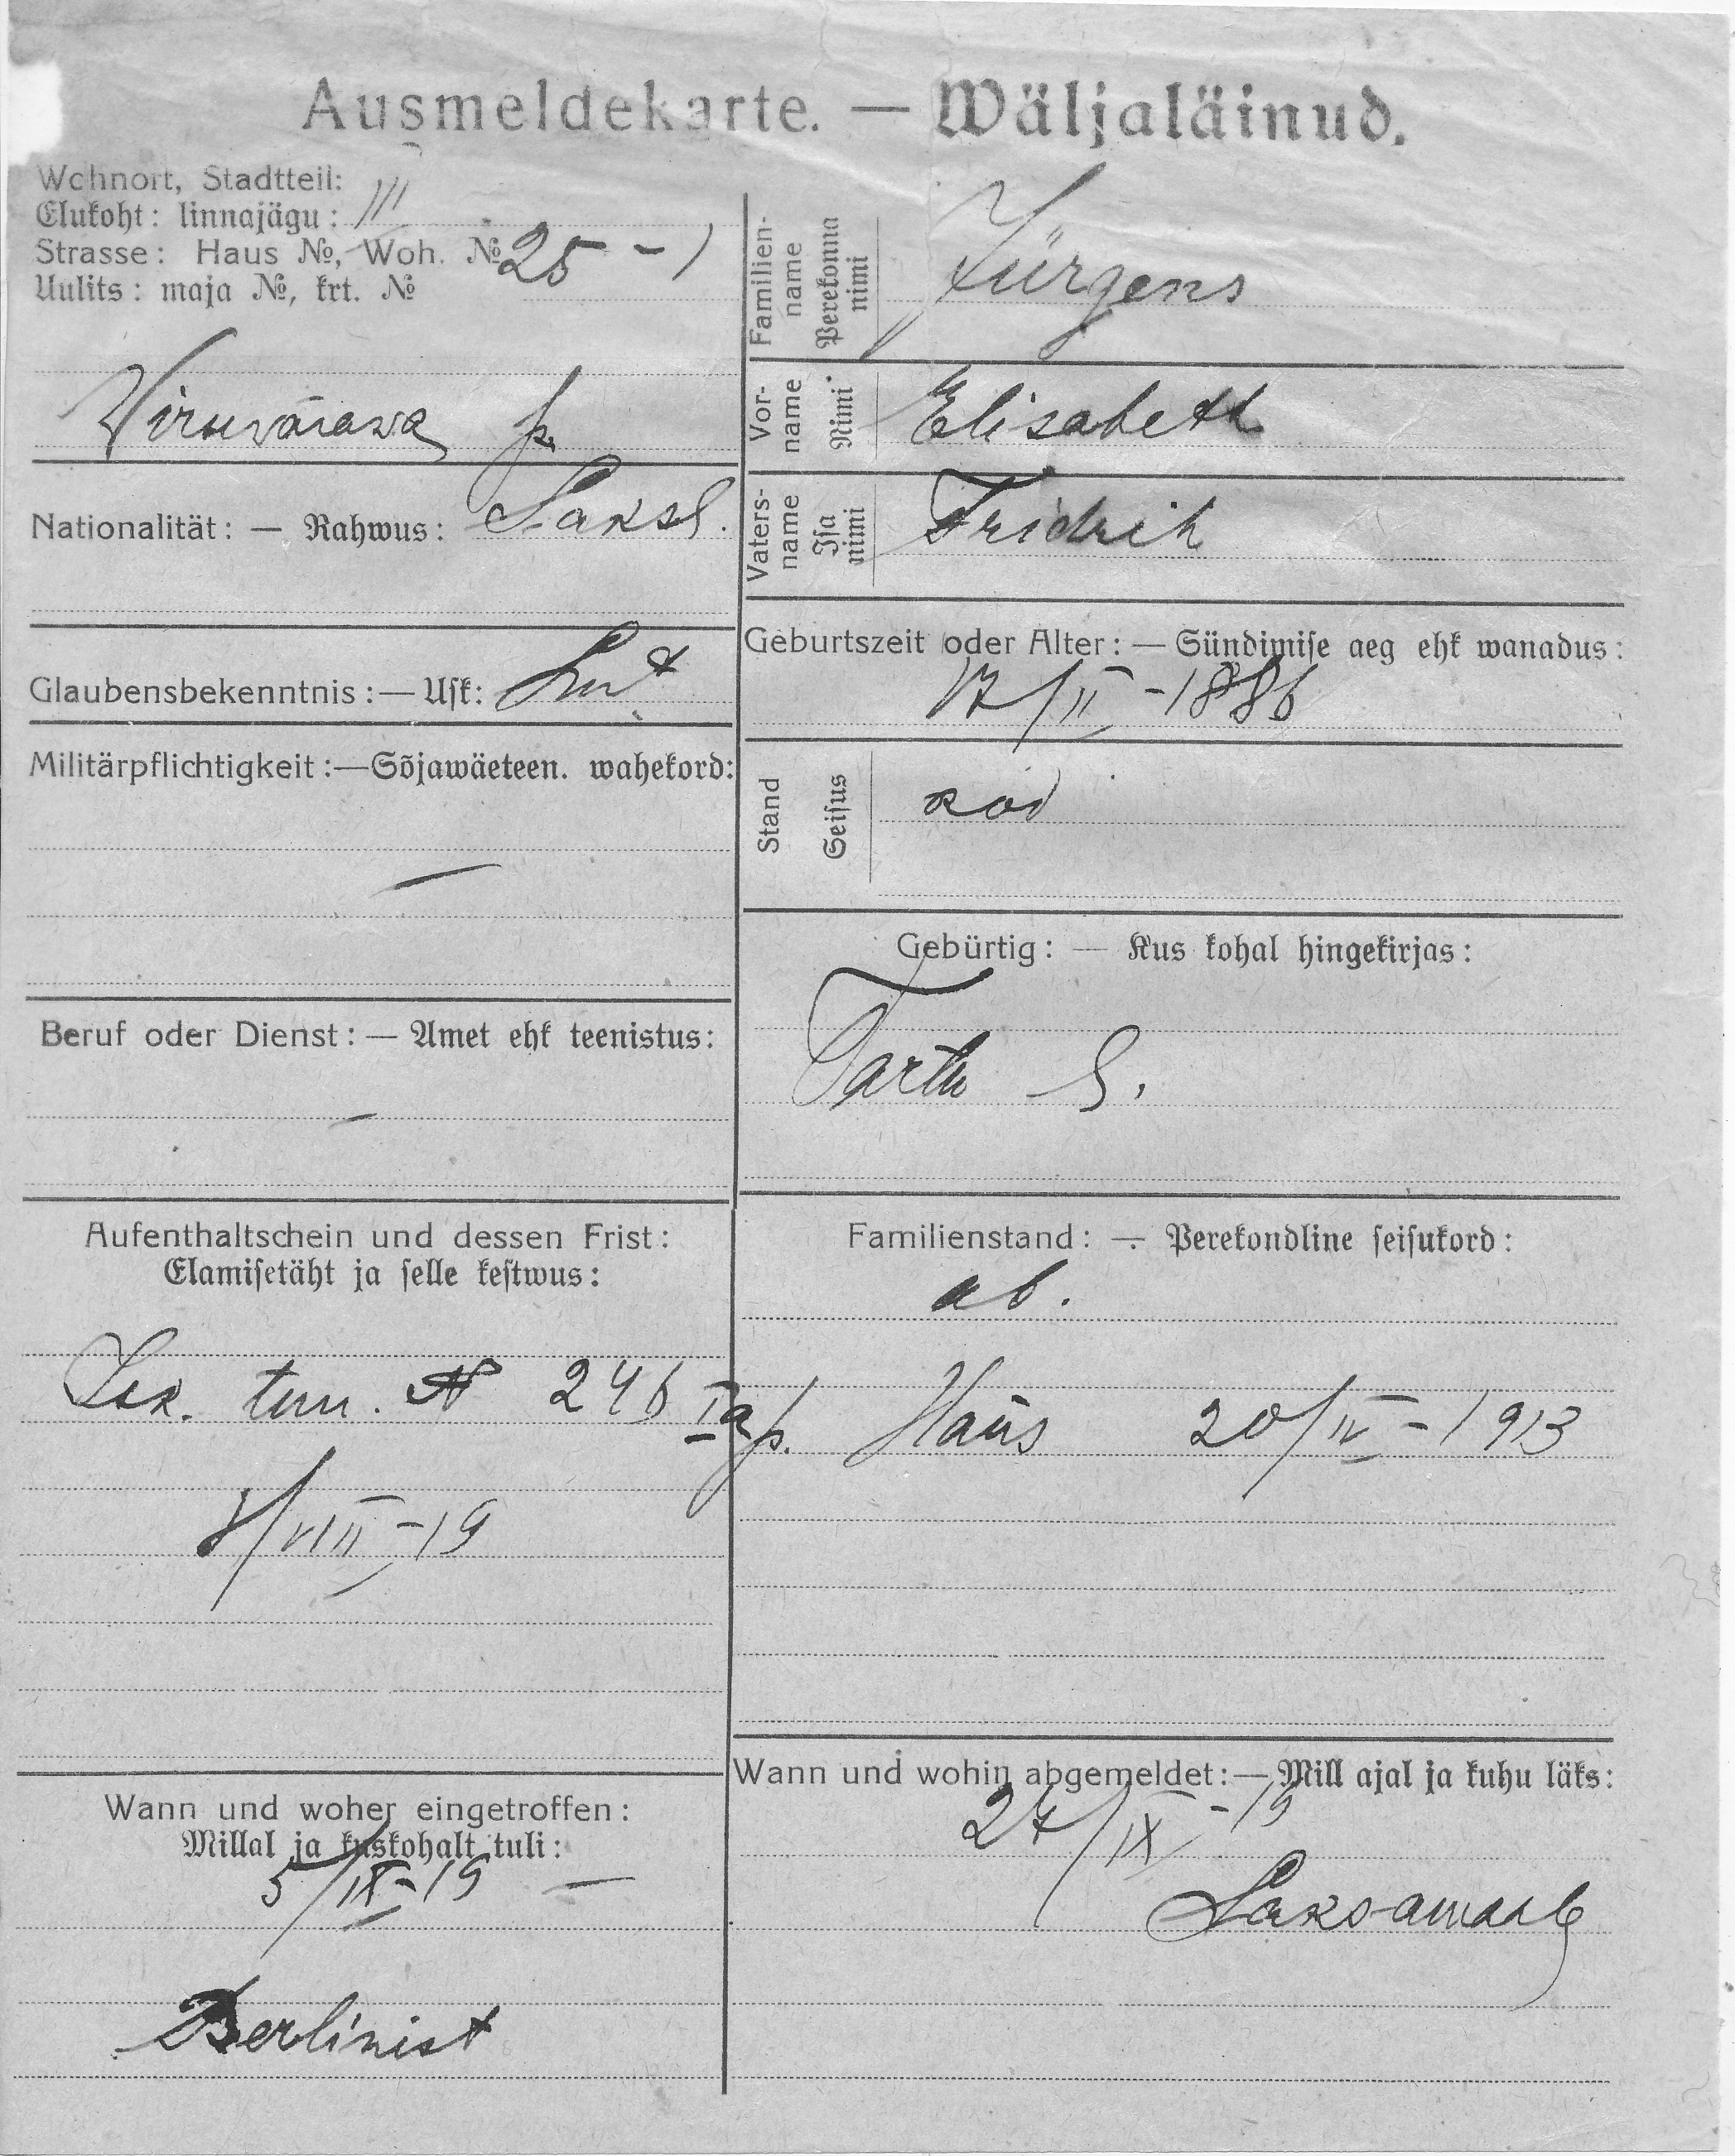 Ausmeldekarte. — Wäljaläinud.
Wohnort, Stadtteil:
Elukoht: linnajägu: III
Strasse: Haus №, Woh. № 25 - 1
Uulits: maja №, krt. №
Wiruwärawa p.
Nationalität: — Rahwus: Saksl.
Glaubensbekenntnis: — Usk: Lut
Militärpflichtigkeit: — Sõjawäeteen. wahekord:
—
Beruf oder Dienst: — Amet ehk teenistus:
—
Aufenthaltschein und dessen Frist:
Elamisetäht ja selle kestwus:
Isk. tun. № 246 I a
8/VIII - 19
Wann und woher eingetroffen:
Millal ja kuskohalt tuli:
5/IX - 19 —
Berlinist
Familien-name
Perekonna nimi
Jürgens
Vor-name
Nimi
Elisabeth
Vaters-name
Isa nimi
Fridrih
Geburtszeit oder Alter: — Sündimise aeg ehk wanadus:
17/II - 1886
Stand
Seisus
kod
Gebürtig: — Kus kohal hingekirjas:
Tartu
Familienstand: — Perekondline seisukord:
ab.
p. Hans 20/IV - 1913
Wann und wohin abgemeldet: — Mill ajal ja kuhu läks:
27/IX - 19
Saksamaale